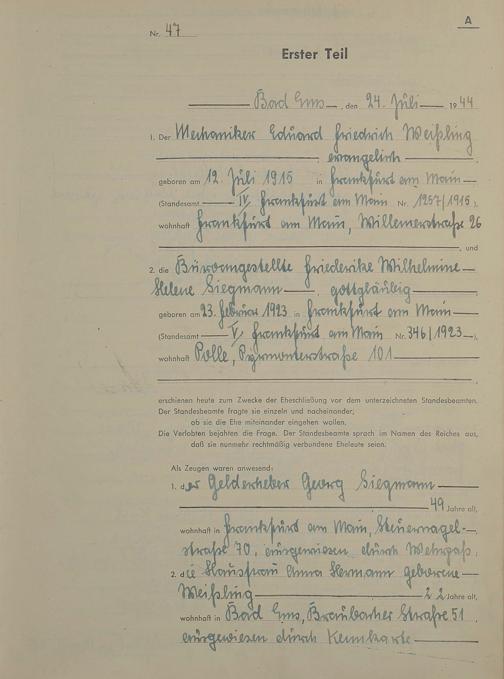 A
Nr. 47
Erster Teil
Bad Ems, den 24. Juli 1944
1. Der Mechaniker Eduard Friedrich Weißling
evangelisch
geboren am 12. Juli 1915 in Frankfurt am Main
(Standesamt IV Frankfurt am Main Nr. 1257/1915),
wohnhaft Frankfurt am Main, Willemerstraße 26
, und
2. die Büroangestellte Friederike Wilhelmine
Helene Siegmann, gottgläubig
geboren am 23. Februar 1923 in Frankfurt am Main
(Standesamt V Frankfurt am Main Nr. 346/1923),
wohnhaft Polle, Pyrmonterstraße 101
erschienen heute zum Zwecke der Eheschließung vor dem unterzeichneten Standesbeamten.
Der Standesbeamte fragte sie einzeln und nacheinander,
ob sie die Ehe miteinander eingehen wollen.
Die Verlobten bejahten die Frage. Der Standesbeamte sprach im Namen des Reiches aus,
daß sie nunmehr rechtmäßig verbundene Eheleute seien.
Als Zeugen waren anwesend:
1. der Gelderheber Georg Siegmann
49 Jahre alt,
wohnhaft in Frankfurt am Main, Steuernagel-
straße 70, ausgewiesen durch Wehrpaß,
2. die Hausfrau Anna Hermann geborene
Weißling Jahre alt,
wohnhaft in Bad Ems, Braubacher Straße 51
ausgewiesen durch Kennkarte